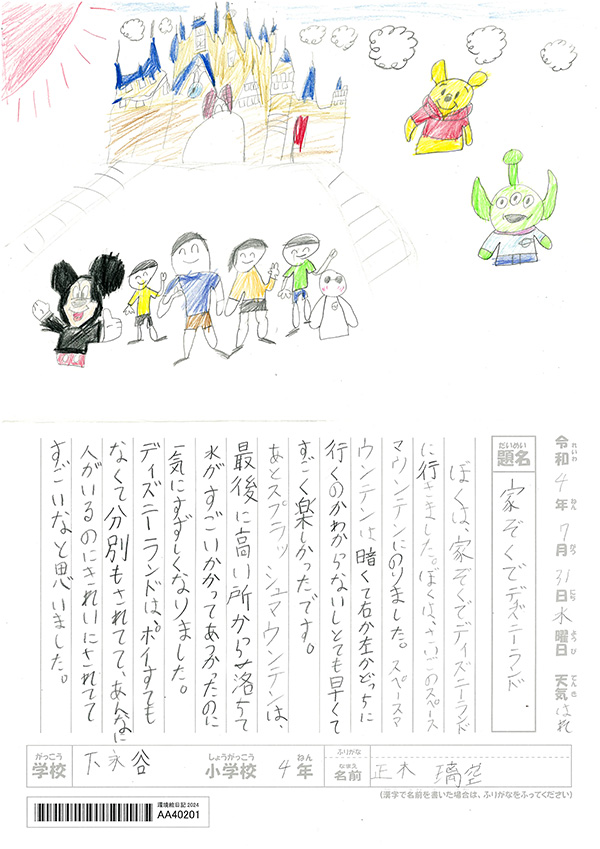 令和4年7月31日水曜日 天気はれ
れいわ ねん がつ にち ようび てんき
だいめい
題名 家ぞくでディズニーランド
ぼくは、家ぞくでディズニーランド
に行きました。ぼくは、さいごのスペース
マウンテンにのりました。スペースマ
ウンテンは暗くて右か左かどっちに
行くのかわからないしとても早くて
すごく楽しかったです。
あとスプラッシュマウンテンは、
最後に高い所から落ちて
水がすごいかかってあつかったのに
一気にすずしくなりました。
ディズニーランドは、ポイすても
なくて分別もされてて、あんなに
人がいるのにきれいにされてて
すごいなと思いました。
がっこう しょうがっこう ねん ふりがな なまえ
学校 下永谷 小学校 4年 名前 正木 璃空
(漢字で名前を書いた場合は、ふりがなをふってください)
環境絵日記 2024
AA40201